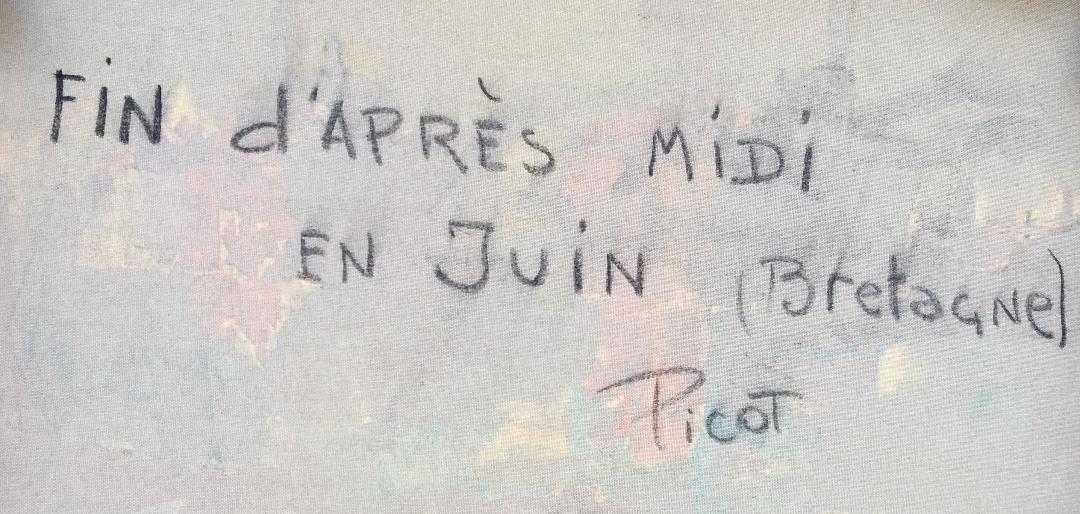 FiN d'APRÈS MiDi
EN JUiN (BretaGNe)
PicoT